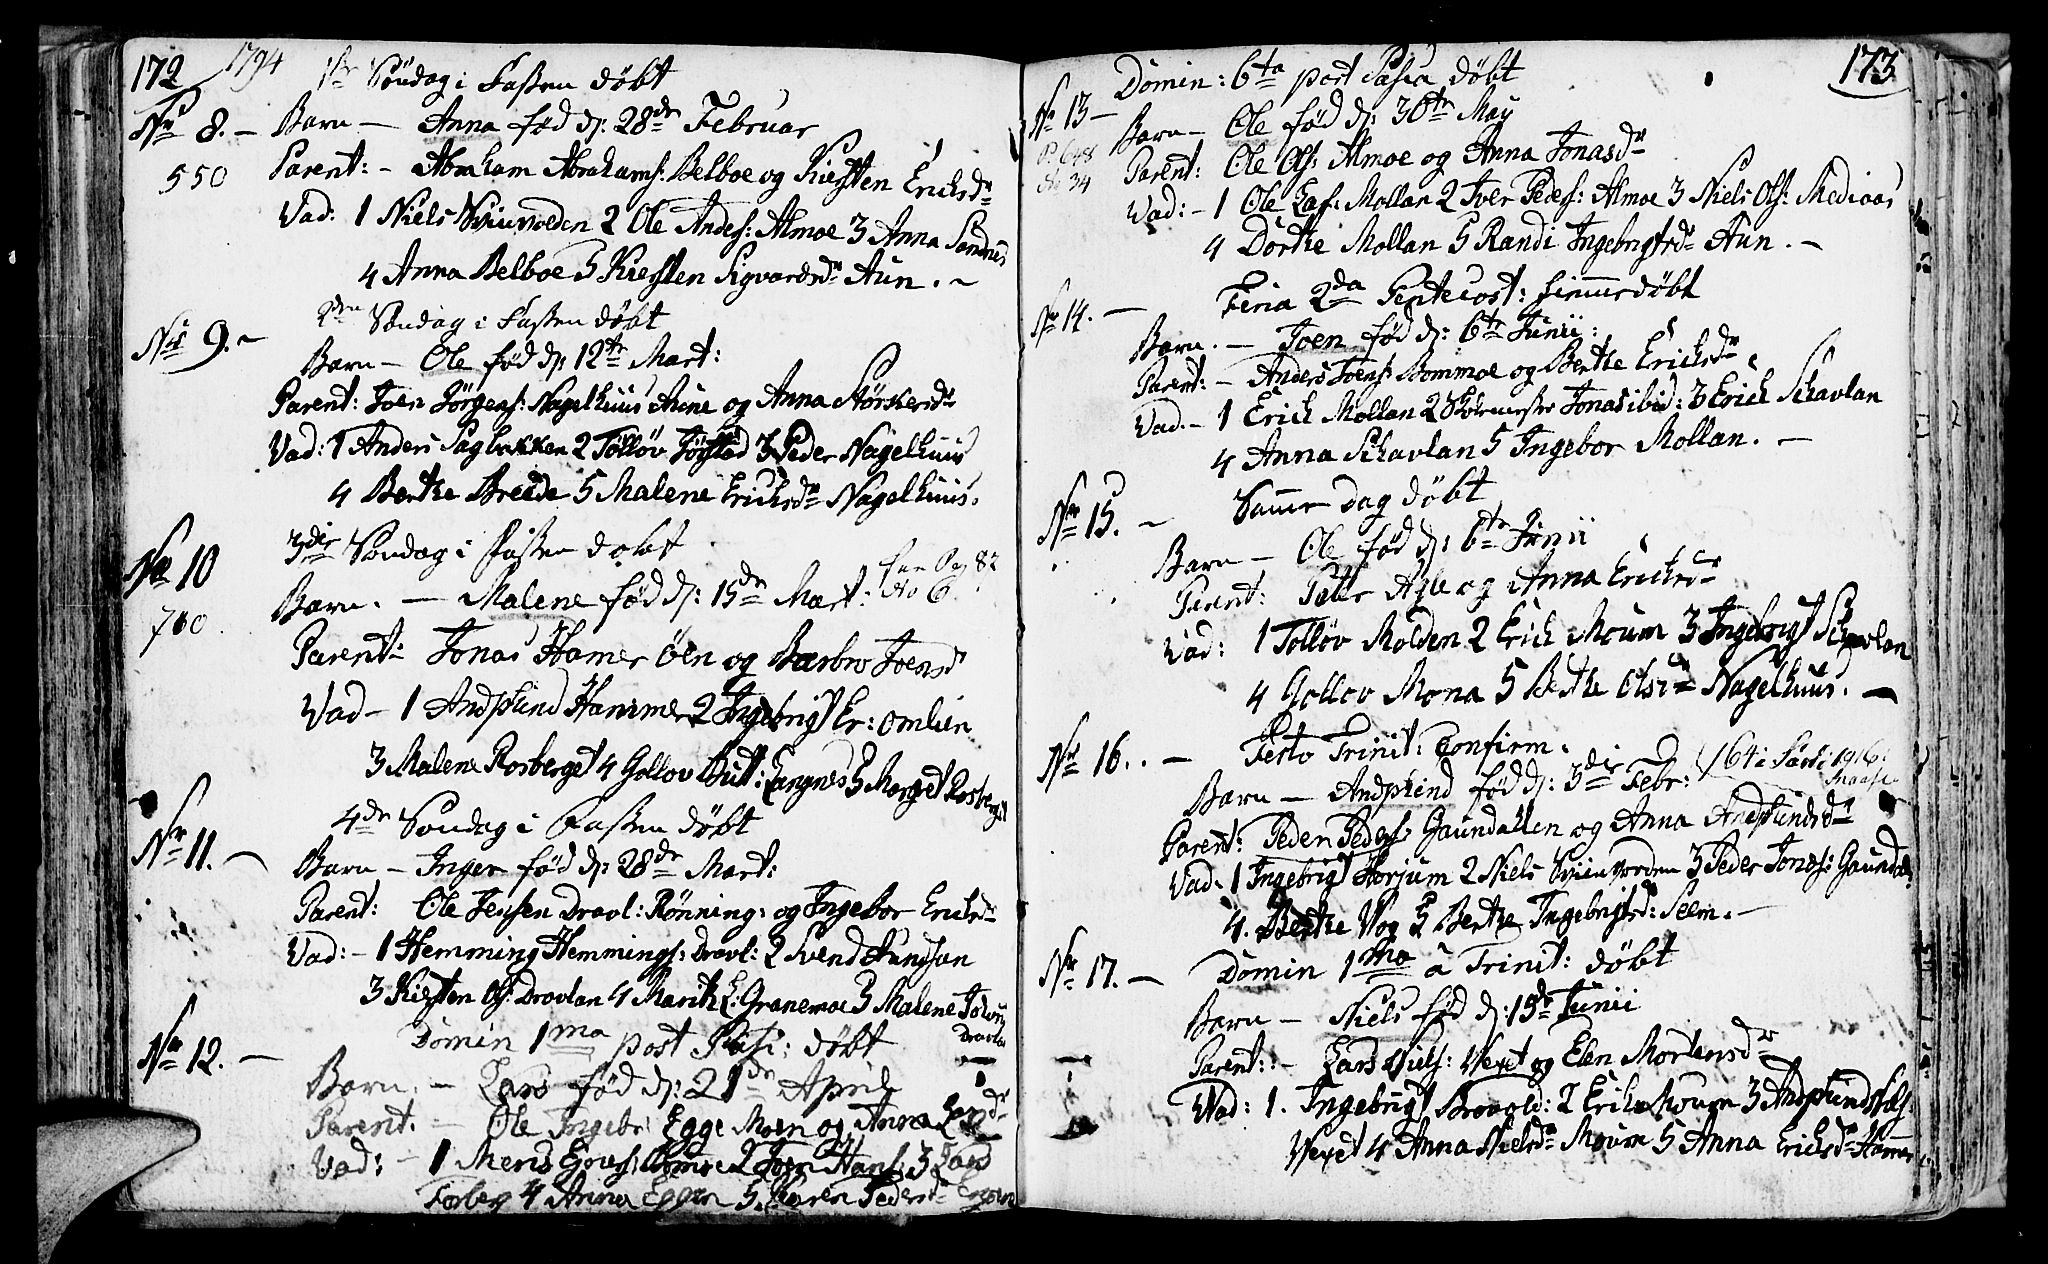 172 1794
1ste Söndag i Fasten döbt
No 8. – Barn – Anna föd d: 28de Februar
550 Parent: – Abraham Abrahams: Belboe og Kiersten Ericksdr
Vad: 1 Niels 2 Ole Anders: Almoe 3 Anna Sandnes
4 Anna Belboe 5 Kiersten Sigvardsdr Aun. –
2den Söndag i Fasten döbt
No 9. – Barn – Ole föd d: 12te Mart:
Parent: Joen Jörgens: Nagelhuus Aune og Anna Störkersdr
Vad: 1 Anders Sagbakken 2 Tolløv 3 Peder Nagelhuus
4 Berthe Breede 5 Malene Ericksdr Nagelhuus.
3die Söndag i Fasten döbt
No 10 Barn. – Malene föd d: 15de Mart: Pag 82
No 6.
Parent: Jonas Hamer öen og Barbro Joensd
Vad – 1 Andphind Hammer 2 Ingebrigt Er: Omlien
3 Malene Rosberget 4 Gollov Langnes 5 Marget Rosberget
4de Söndag i Fasten döbt
No 11. – Barn – Inger föd d: 28de Mart:
Parent: Ole Jensen Dravl: Rönning: og Ingebor Ericksdr
Vad: – 1 Hemming Hemmings: Dravl: 2 Svend
3 Kiersten Ols: Dravlan 4 Marith E: Granemoe 5 Malene
Dravlan
Domin 1ma post Pasc: döbt
No 12. – Barn. – Lars föd d: 21de April
Parent: – Ole Ingebr: Egge Moen og Anna
Vad: – 1 2 Joen Hans: 3 Lars
4 Anna Eggen 5. Karen Pedersdr
173
Domin: 6ta post Pasca döbt
No 13 – Barn – Ole föd d: 30te May
P. 648
No 34
Parent: Ole Ols: Almoe og Anna Jonasdr
Vad: – 1 Ole Mollan 2 Iver Peders: Almoe 3 Niels Ols: Mediaas
4 Dorthe Mollan 5 Randi Ingebrigtsdr Aun. –
Feria 2da Pentecost: döbt
No 14. – Barn. – Joen föd d: 6te Junii:
Parent: – Anders Joens: Bommoe og Berthe Ericksdr
Vad. – 1 Erich Mollan 2 Jonas ibid: 3 Erich Schavlan
4 Anna Schavlan 5 Ingebor Mollan. –
Samme Dag döbt
No 15. – Barn – Ole föd d: 6te Junii
Parent: Agle og Anna Ericksdr
Vad: 1 Tolløv Molden 2 Erich Moum 3 Ingebrigt Schavlan
4 Gollov Mona 5 Berthe Olsdr Nagelhuus. –
No 16. – Festo Trinit: Confirm.
Barn – Andphind föd d: 3die Febr: 164 i
Parent: Peder Peders: Gaundallen og Anna Andphindsdr
Vad. 1 Ingebrigt 2 Niels 3 Peder Jonas: Gaundal
4. Berthe Vog 5 Berthe Ingebrigtsd: Seem. –
No 17. – Domin 1ma à Trinit: döbt
Barn – Niels föd d: 15de Junii
Parent: – Lars Niels: Vexet og Elen Mortensdr
Vad: 1. Ingebrigt 2 Erick Moum 3 Andphind
Vexet 4 Anna Nielsdr Moum 5 Anna Ericksdr Hammer